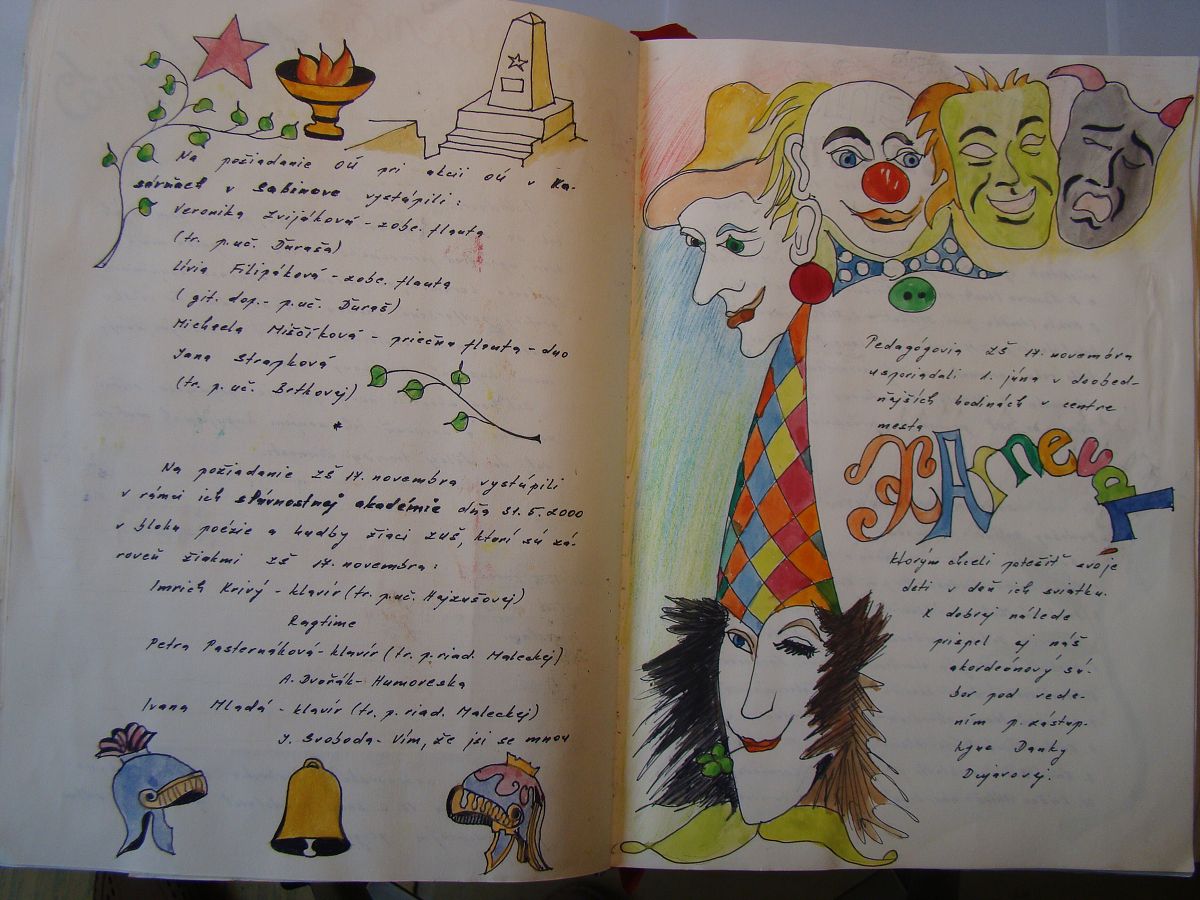 Na požiadanie OÚ pri akcii OÚ v Ka-
sárňach v Sabinove vystúpili:
Veronika Zvijáková - zobc. flauta
(tr. p. uč. Ďuraša)
Lívia Filipáková - zobc. flauta
(git. dop. - p. uč. Ďuraš)
Michaela Miščíková - priečna flauta - duo
Jana Strapková
(tr. p. uč. Brtkovej)
*
Na požiadanie ZŠ 17. novembra vystúpili
v rámci ich slávnostnej akadémie dňa 31.5.2000
v bloku poézie a hudby žiaci ZUŠ, ktorí sú zá-
roveň žiakmi ZŠ 17. novembra:
Imrich Krivý - klavír (tr. p. uč. Hajzušovej)
Ragtime
Petra Pasternáková - klavír (tr. p. riad. Maleckej)
A. Dvořák - Humoreska
Ivana Mladá - klavír (tr. p. riad. Maleckej)
J. Svoboda - Vím, že jsi se mnou
Pedagógovia ZŠ 17. novembra
usporiadali 1. júna v doobed-
ňajších hodinách v centre
mesta
KArnevaL
ktorým chceli potešiť svoje
deti v deň ich sviatku.
K dobrej nálade
prispel aj náš
akordeónový sú-
bor pod vede-
ním p. zástup-
kyne Danky
Dujavovej.